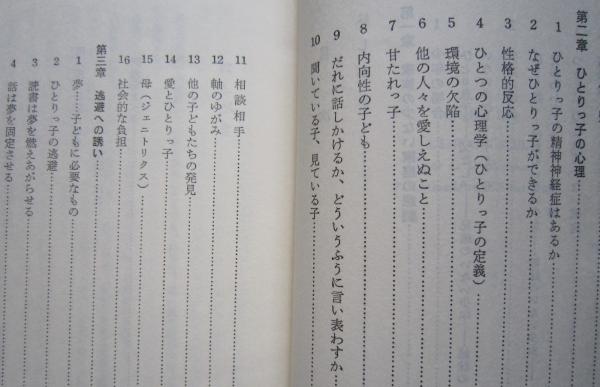 第二章　ひとりっ子の心理……………
1　ひとりっ子の精神神経症はあるか……………
2　なぜひとりっ子ができるか……………
3　性格的反応……………
4　ひとつの心理学（ひとりっ子の定義）……………
5　環境の欠陥……………
6　他の人々を愛しえぬこと……………
7　甘たれっ子……………
8　内向性の子ども……………
9　だれに話しかけるか、どういうふうに言い表わすか……………
10　聞いている子、見ている子……………
11　相談相手……………
12　軸のゆがみ……………
13　他の子どもたちの発見……………
14　愛とひとりっ子……………
15　母（ジェニトリクス）……………
16　社会的な負担……………
第三章　逃避への誘い……………
1　夢……子どもに必要なもの……………
2　ひとりっ子の逃避……………
3　読書は夢を燃えあがらせる……………
4　話は夢を固定させる……………